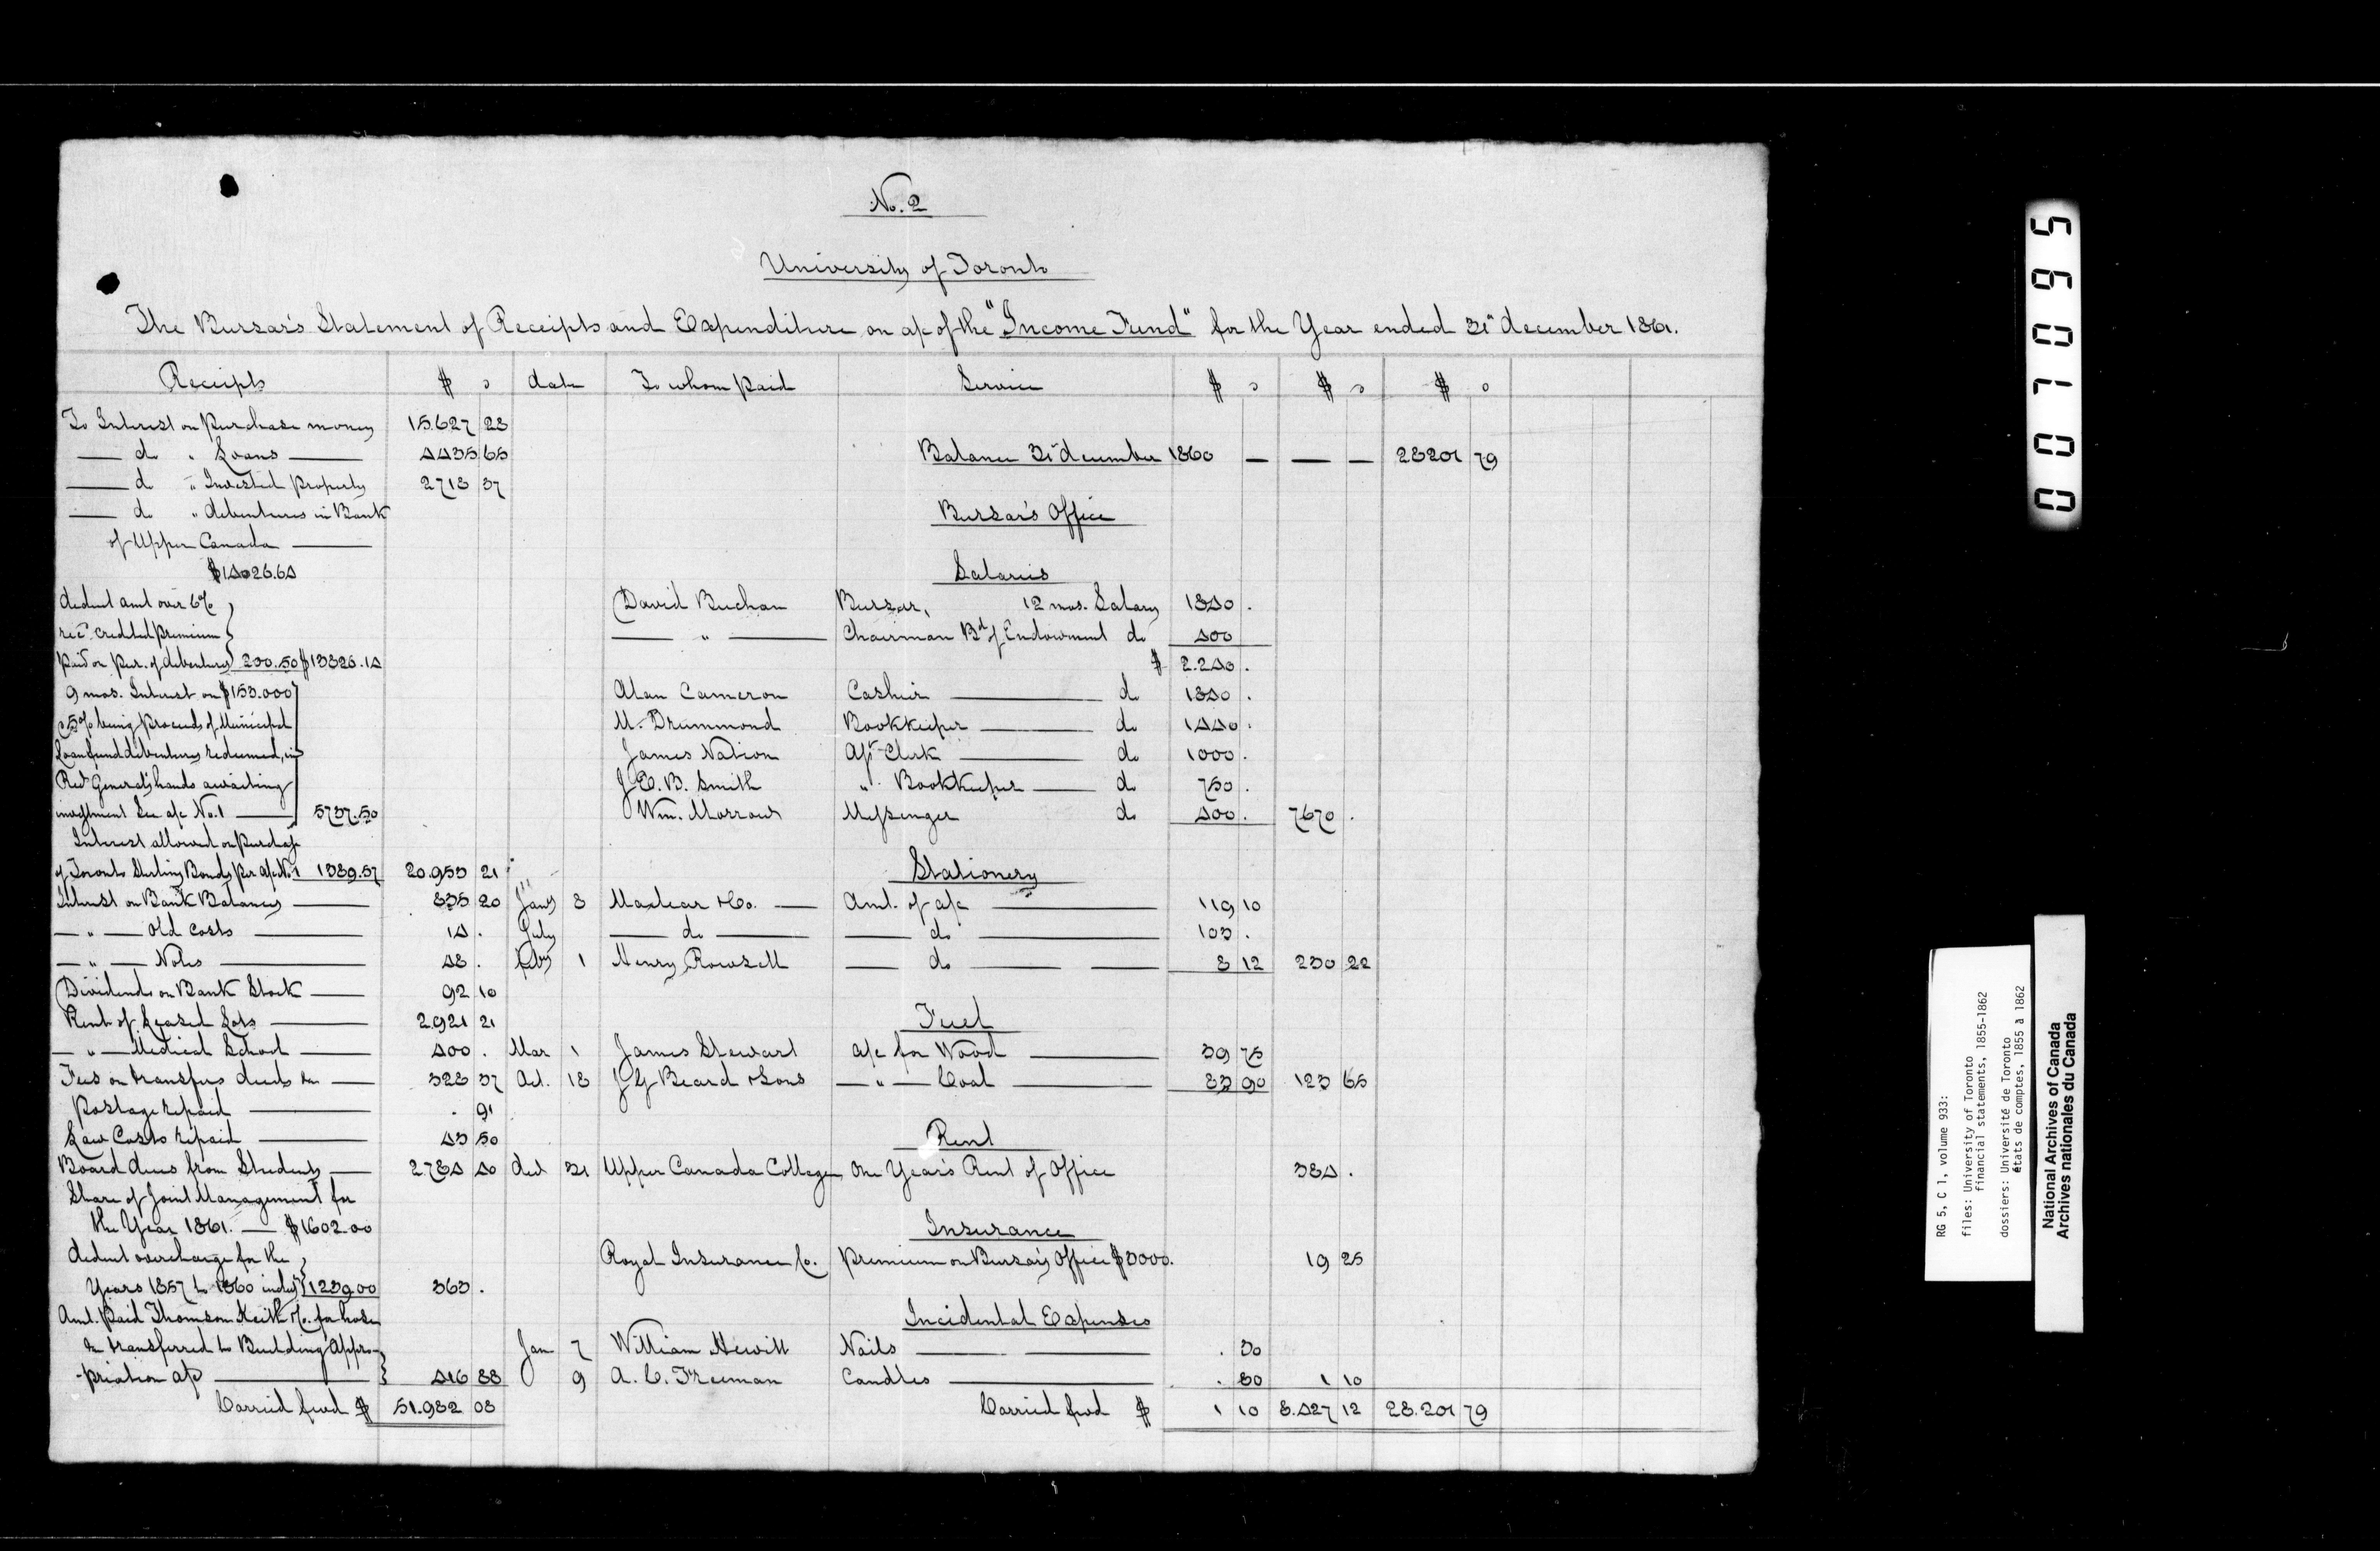 No. 2
University of Toronto
The Bursar's Statement of Receipts and Expenditure on a/c of the "Income Fund" for the Year ended 31st december 1861.
Receipts $ c date To whom Paid Service $ c $ c $ c
To Interest on Purchase money 15.627 28
— do " Loans — 4435 65 Balance 31st december 1860 — — — 28201 79
— do " Invested Property 2718 37
— do " debentures in Bank Bursar's Office
of Upper Canada —
$14026.64 Salaries
deduct amt over 6% David Buchan Bursar, 12 mos. Salary 1840 .
rec'd credited Premium — " — Chairman Bd of Endowment do 400
Paid on pur. of debentures 200.50 $13826.14 $ 2.240 .
9 mos. Interest on $153.000 Alan Cameron Cashier — do 1840 .
@5% being Proceeds of Municipal M. Drummond Bookkeeper — do 1440 .
Loan fund debentures redeemed, in James Nation Asst Clerk — do 1000 .
Rec. General's hands awaiting J. E. B. Smith " Bookkeeper — do 750 .
investment See a/c No.1 — 5737.50 Wm. Morrow Messenger do 400 . 7670 .
Interest allowed on Purchase
of Toronto Sterling Bonds per a/c No.1 1389.57 20.953 21 Stationery
Interest on Bank Balances — 835 20 Jany 8 Maclear & Co. — Amt. of a/c — 119 10
— " — Old Costs — 14 . July — do — — do — 103 .
— " — Notes — 48 . Feby 1 Henry Rowsell — do — — 8 12 230 22
Dividends on Bank Stock — 92 10
Rent of Leased Lots — 2.921 21 Fuel
— " — Medical School — 400 . Mar 1 James Stewart a/c for Wood — 39 75
Fees on transfers deeds &c — 328 37 Oct. 18 J G Beard & Sons — " — Coal — 83 90 123 65
Postage repaid — . 91
Law Costs repaid — 43 50 Rent
Board dues from Students — 2784 40 dec 31 Upper Canada College One Year's Rent of Office 384 .
Share of Joint Management for
the Year 1861. — $1602.00 Insurance
deduct overcharge for the Royal Insurance Co. Premium on Bursar's Office $3000. 19 25
Years 1857 to 1860 inclus 1239.00 363 .
Amt. Paid Thomson Keith & Co. for hose Incidental Expenses
&c transferred to Building Appro- Jan 7 William Hewitt Nails — — . 30
-priation a/c — 416 88 9 A. C. Freeman Candles — . 80 1 10
Carried fwd $ 51.982 08 Carried fwd $ 1 10 8.427 12 28.201 79
001095
RG 5, C 1, volume 933:
files: University of Toronto
financial statements, 1855-1862
dossiers: Université de Toronto
états de comptes, 1855 à 1862
National Archives of Canada
Archives nationales du Canada